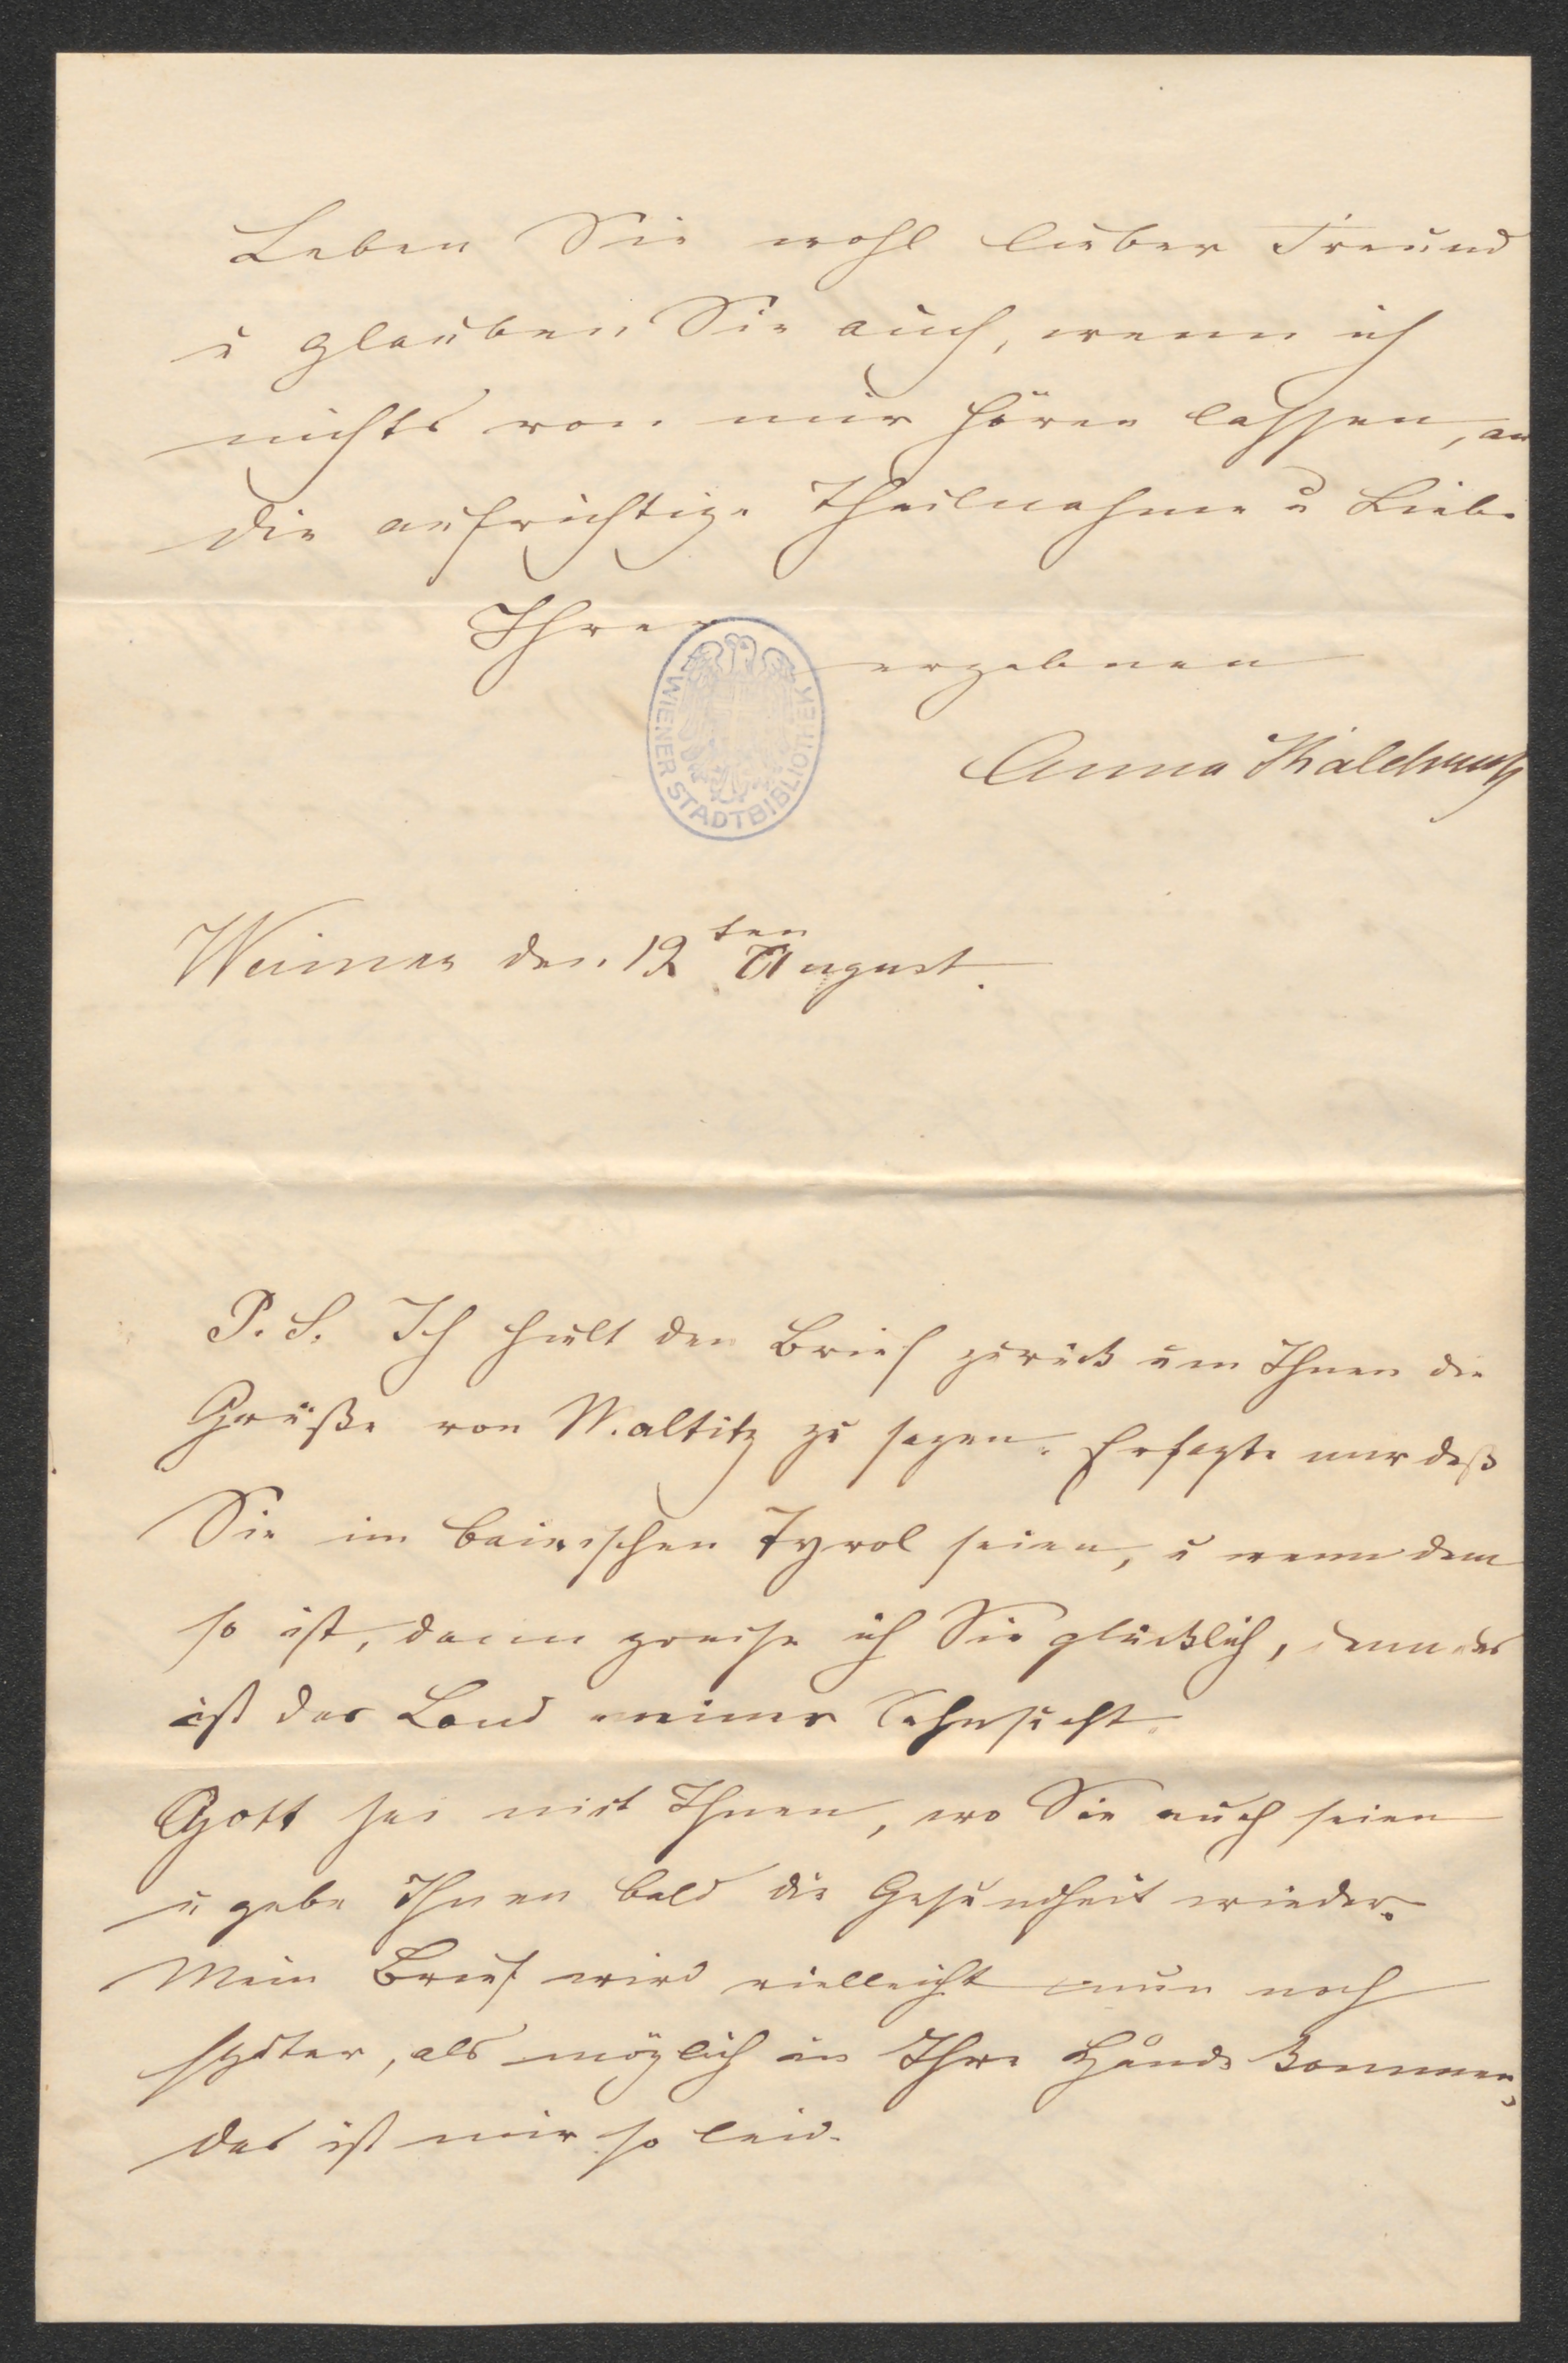 Leben Sie wohl lieber Freund
u glauben Sie auch, wenn ich
nichts von mir hören lassen, an
die aufrichtige Theilnahme u Liebe
Ihrer
ergebnen
Anna
WIENER STADTBIBLIOTHEK
Weimar den 12ten August.
P. S. Ich hielt den Brief zurück um Ihnen die
Grüße von Maltitz zu sagen. Er sagte mir daß
Sie im bairischen Tyrol seien, u wenn dem
so ist, dann preise ich Sie glücklich, denn das
ist das Land meiner Sehnsucht.
Gott sei mit Ihnen, wo Sie auch seien
u gebe Ihnen bald die Gesundheit wieder.
Mein Brief wird vielleicht nun noch
später, als möglich in Ihre Hände kommen,
das ist mir so leid.